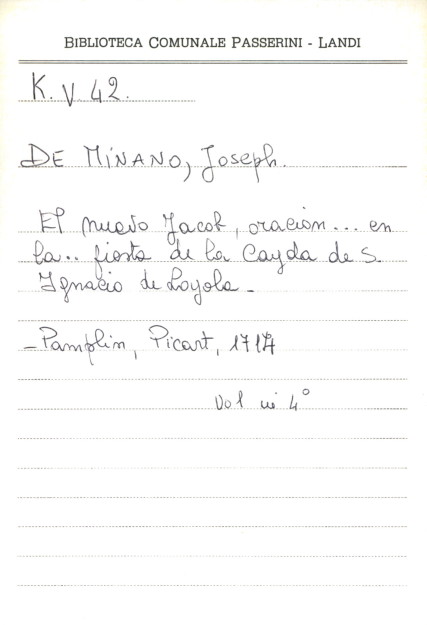 BIBLIOTECA COMUNALE PASSERINI - LANDI
K. V 42.
DE MINANO, Joseph.
El nuevo Jacob, oracion... en
la.. fiesta de la Cayda de S.
Ignacio de Loyola -
- Pamplin, Picart, 1717
Vol in 4°